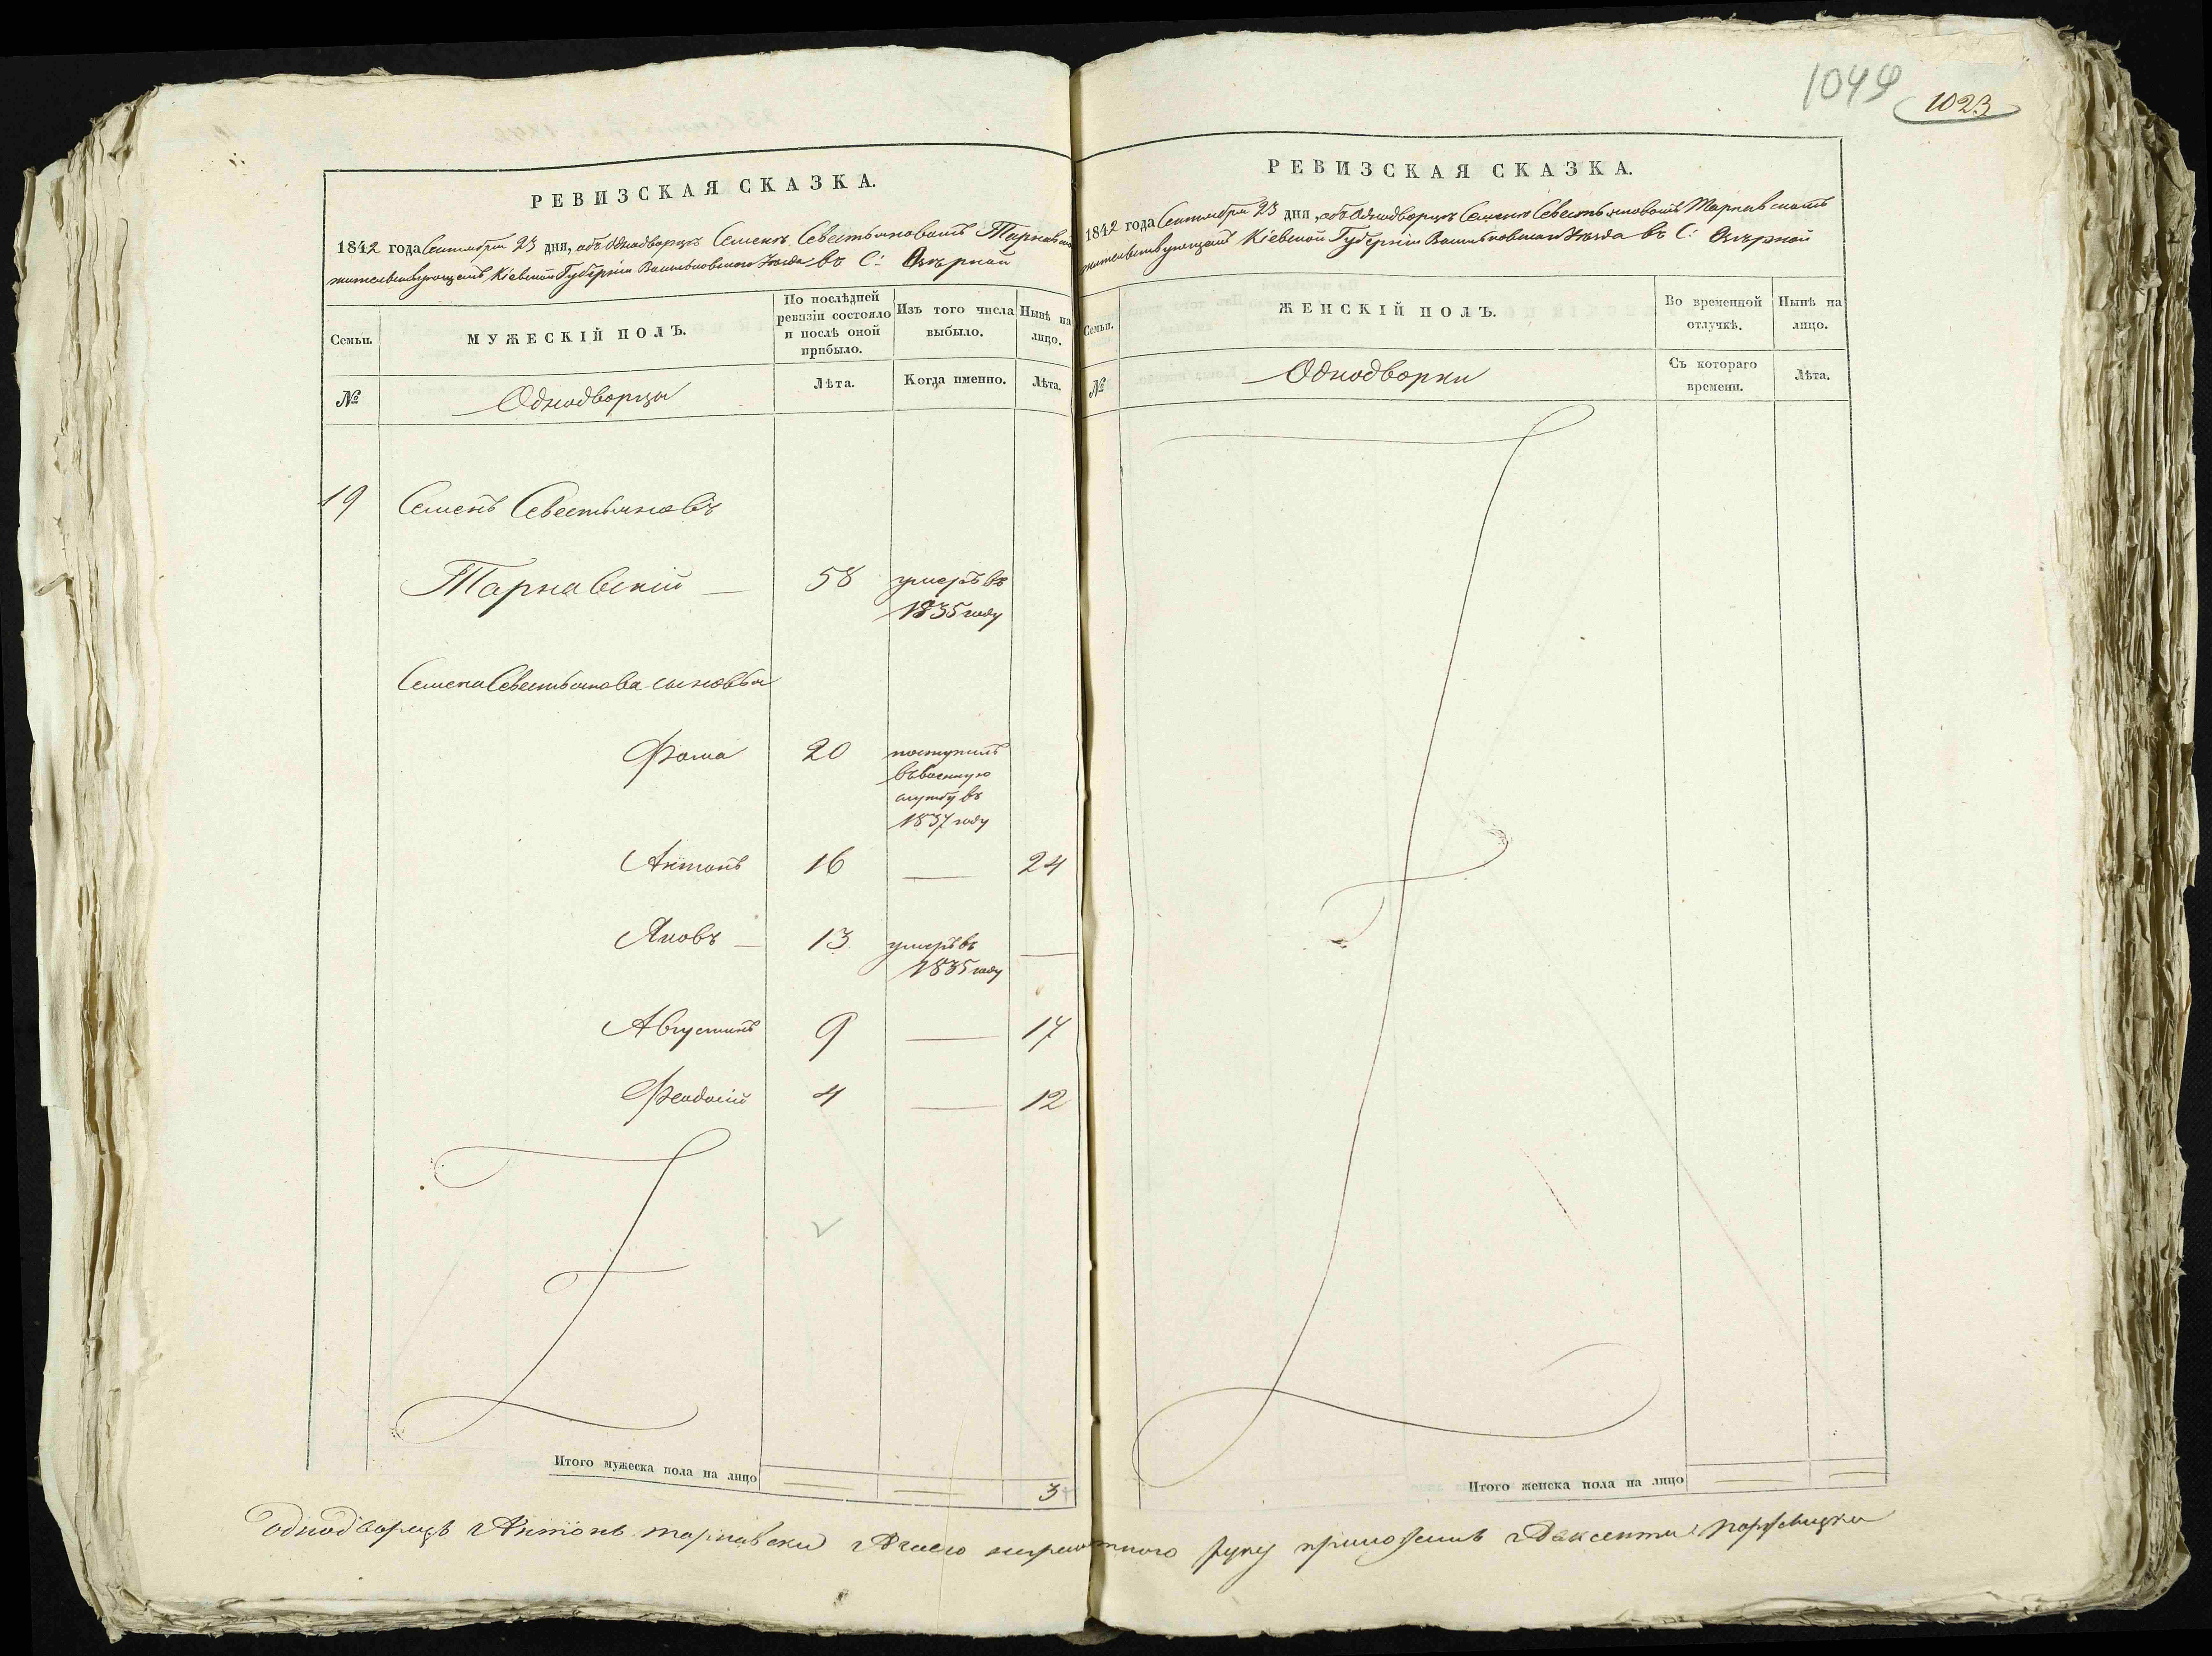 1049
1023
РЕВИЗСКАЯ СКАЗКА.
1842 года Сентября 23 дня, объ Однодворцѣ Семенѣ Севестьяновомъ Тарнавскомъ
жительствующемъ Кіевской Губерніи Васильковскаго Уѣзда въ С: Озѣрной
Семьи.
МУЖЕСКІЙ ПОЛЪ.
По послѣдней
ревизіи состояло
и послѣ оной
прибыло.
Изъ того числа
выбыло.
Нынѣ на
лицо.
№
Однодворцы
Лѣта.
Когда именно.
Лѣта.
19 Семенъ Севестьяновъ
Тарнавскій 58 умеръ въ
1835 году
Семена Севестьянова сыновья
Фома 20 поступилъ
въ военную
службу въ
1837 году
Антонъ 16 — 24
Яковъ — 13 умеръ въ —
1835 году
Августинъ 9 — 17
Феодосій 4 — 12
Итого мужеска пола на лицо 3
РЕВИЗСКАЯ СКАЗКА.
1842 года Сентября 23 дня, объ Однодворцѣ Семенѣ Севестьяновомъ Тарнавскомъ
жительствующемъ Кіевской Губерніи Васильковскаго Уѣзда въ С: Озѣрной
Семьи.
ЖЕНСКІЙ ПОЛЪ.
Во временной
отлучкѣ.
Нынѣ на
лицо.
№
Однодворки
Съ котораго
времени.
Лѣта.
Итого женска пола на лицо
однодворецъ Антонъ тарнавски руку приложилъ